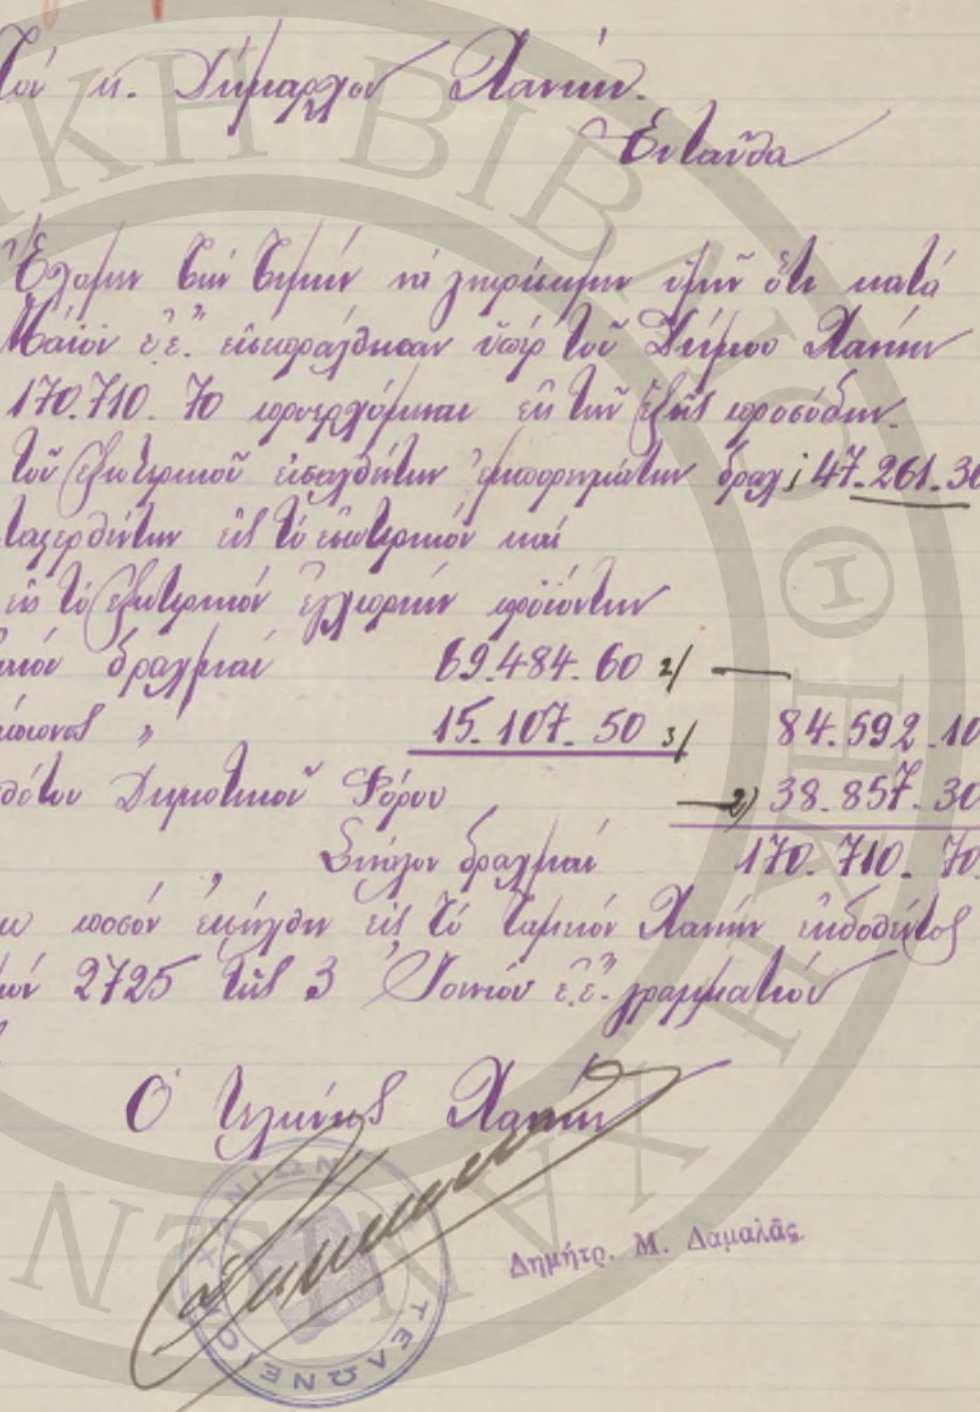 Τόν κ. Δήμαρχον Χανίων.
Ἐνταῦθα
Ἔχομεν τήν τιμήν νά γνωρίσωμεν ὑμῖν ὅτι κατά
Μάϊον ἐ.ἔ. εἰσεπράχθησαν ὑπέρ τοῦ Δήμου Χανίων
170.710.70 προερχόμεναι ἐκ τῶν ἑξῆς προσόδων.
τοῦ ἐξωτερικοῦ εἰσαχθέντων ἐμπορευμάτων δραχ; 47.261.30
εἰς τό ἐσωτερικόν καί
εἰς τό ἐξωτερικόν ἐγχωρίων προϊόντων
δραχμαί 69.484.60 2/ —
" 15.107.50 3/ 84.592.10
Δημοτικοῦ Φόρου —2) 38.857.30
Σύνολον δραχμαί 170.710.70
ποσόν εἰσήχθη εἰς τό ταμεῖον Χανίων ἐκδοθέντος
2725 τῆς 3 Ἰουνίου ἐ.ἔ. γραμματίου
Ὁ Τελώνης Χανίων
Δημήτρ. Μ. Δαμαλᾶς
ΤΕΛΩΝΕΙΟΝ ΧΑΝΙΩΝ
ΒΙΒΛΙΟΘΗΚΗ ΧΑΝΙΩΝ